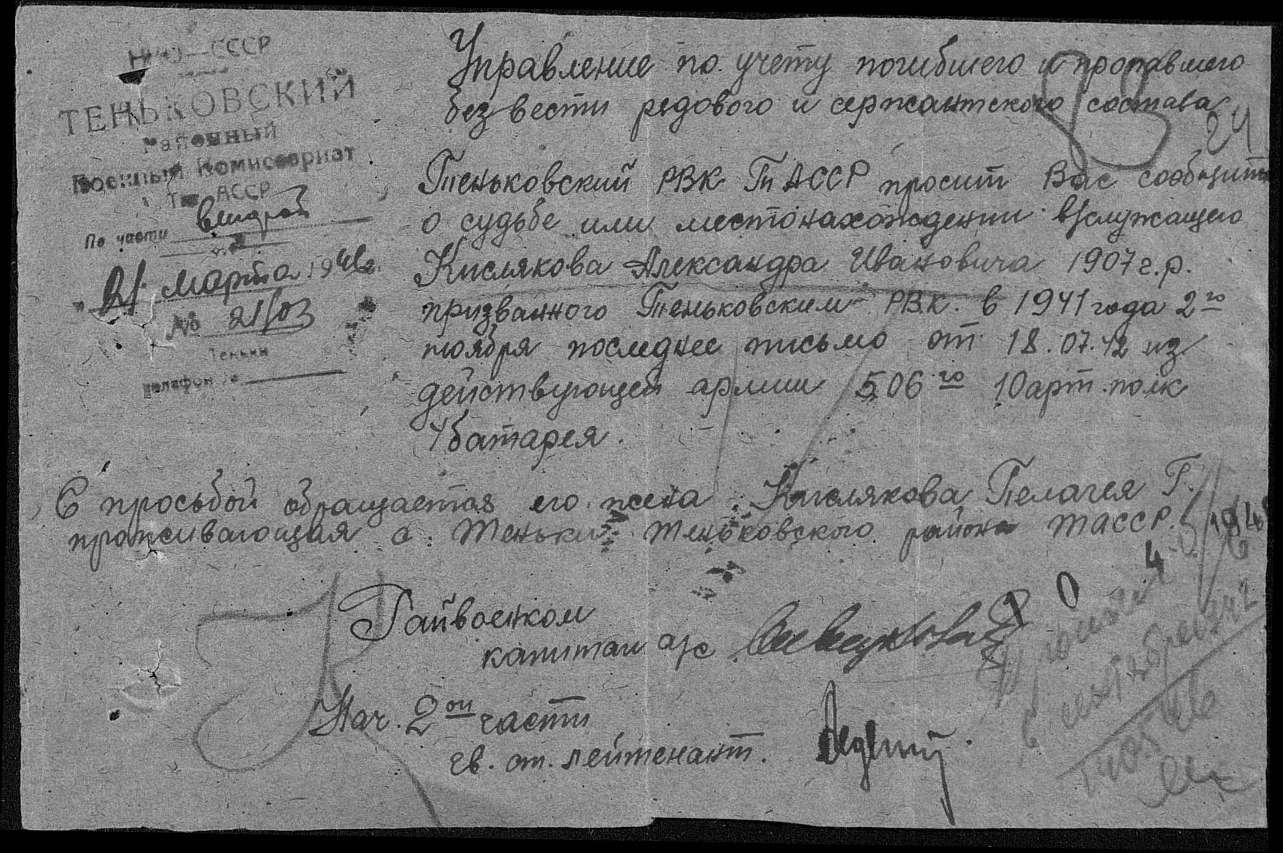 НКО—СССР
ТЕНЬКОВСКИЙ
Районный
Военный Комиссариат
Тат АССР
По части второй
21 марта 1946г.
№ 21/03
Теньки
телефон №
Управление по учету погибшего и пропавшего
без вести редового и сержантского состава
24
Теньковский РВК ТАССР просит Вас сообщить
о судьбе или местонахождении в/служащего
Кислякова Александра Ивановича 1907 г.р.
призванного Теньковским РВК. в 1941 года 2го
ноября последнее письмо от 18.07.42 из
действующей армии 506го 10 арт. полк
4 батарея.
С просьбой обращается его жена Кислякова Пелагея Г.
проживающая с. Теньки Теньковского района ТАССР.
Райвоенком
капитан а/с
Нач. 2ой части
гв. ст. лейтенант.